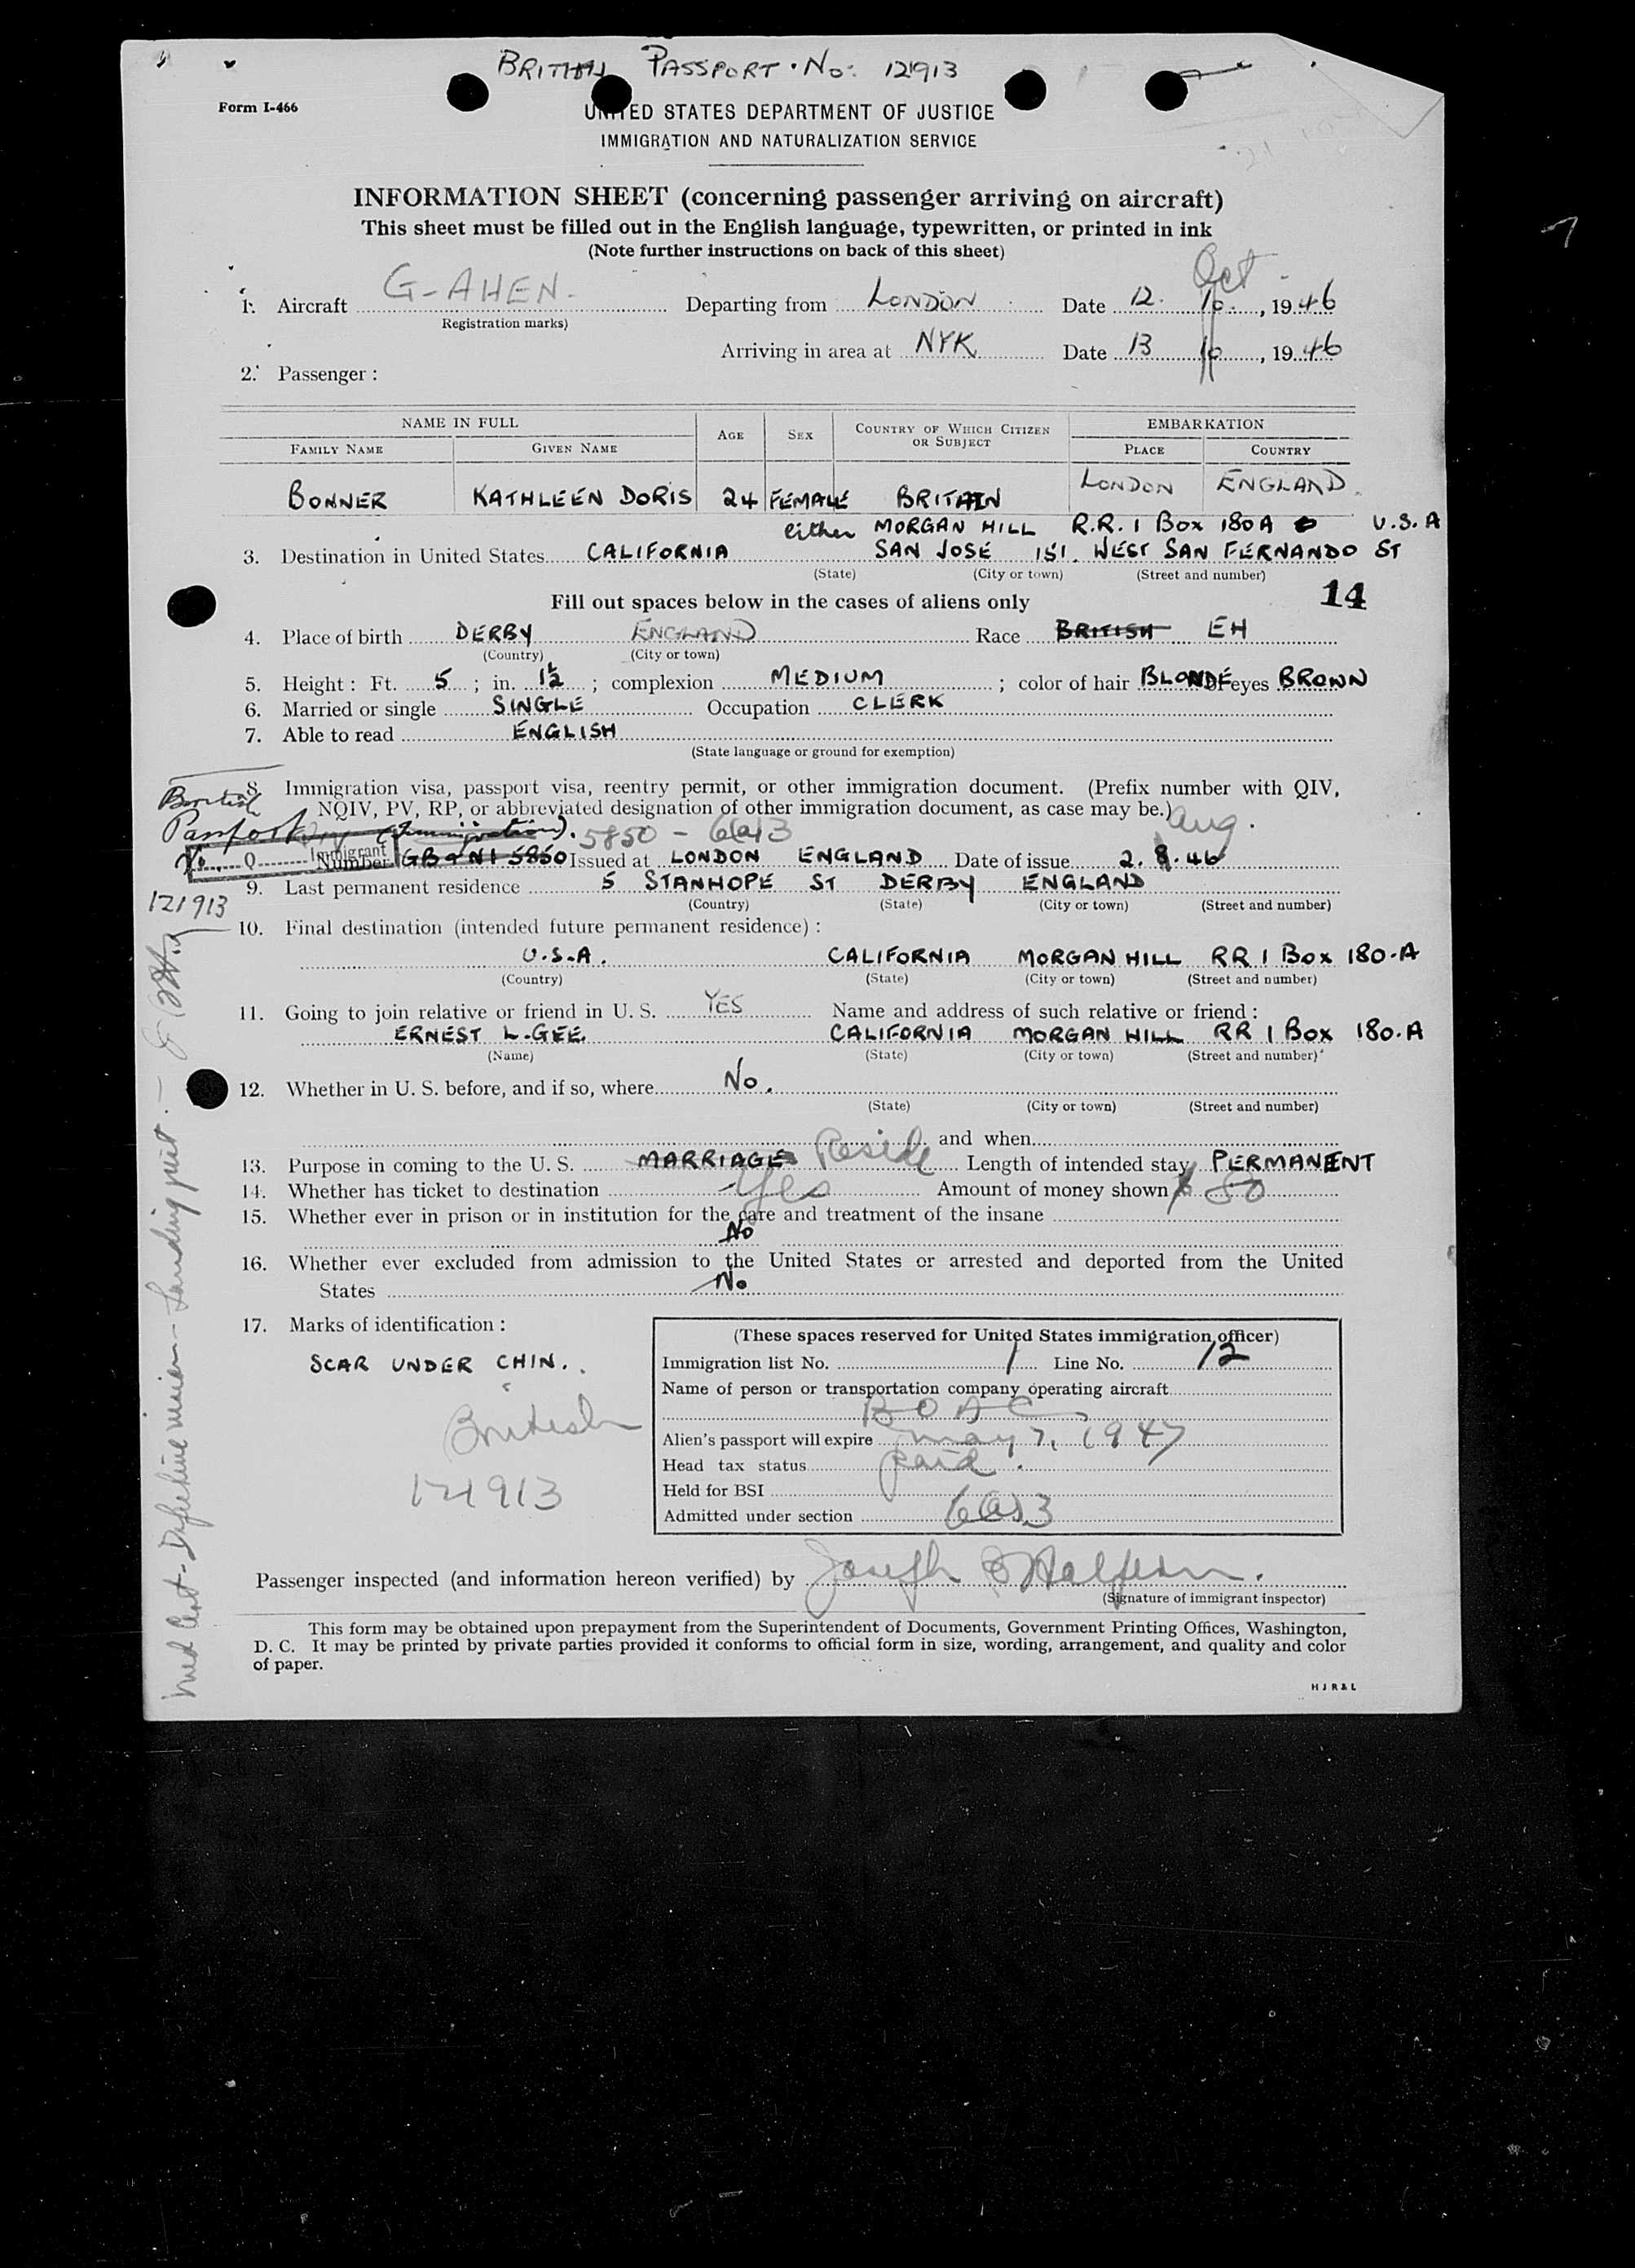 BRITISH PASSPORT. No: 121913
Form I-466
UNITED STATES DEPARTMENT OF JUSTICE
IMMIGRATION AND NATURALIZATION SERVICE
INFORMATION SHEET (concerning passenger arriving on aircraft)
This sheet must be filled out in the English language, typewritten, or printed in ink
(Note further instructions on back of this sheet)
Oct
1. Aircraft G-AHEN. Departing from LONDON Date 12. 10., 1946
(Registration marks)
Arriving in area at NYK Date 13 10, 1946
2. Passenger :
NAME IN FULL AGE SEX COUNTRY OF WHICH CITIZEN OR SUBJECT EMBARKATION
FAMILY NAME GIVEN NAME PLACE COUNTRY
BONNER KATHLEEN DORIS 24 FEMALE BRITAIN LONDON ENGLAND.
either MORGAN HILL R.R. 1 BOX 180A U.S.A
3. Destination in United States CALIFORNIA SAN JOSE 151. WEST SAN FERNANDO ST
(State) (City or town) (Street and number)
Fill out spaces below in the cases of aliens only 14
4. Place of birth DERBY ENGLAND Race BRITISH EH
(Country) (City or town)
5. Height : Ft. 5 ; in. 1½ ; complexion MEDIUM ; color of hair BLONDE eyes BROWN
6. Married or single SINGLE Occupation CLERK
7. Able to read ENGLISH
(State language or ground for exemption)
8. Immigration visa, passport visa, reentry permit, or other immigration document. (Prefix number with QIV,
NQIV, PV, RP, or abbreviated designation of other immigration document, as case may be.) Aug.
British
Passport QIV (Immigration). 5850 - 6(a)3
No. Immigrant Number GB & NI 5850 Issued at LONDON ENGLAND Date of issue 2. 8. 46
121913
9. Last permanent residence 5 STANHOPE ST DERBY ENGLAND
(Country) (State) (City or town) (Street and number)
10. Final destination (intended future permanent residence) :
U.S.A. CALIFORNIA MORGAN HILL RR 1 BOX 180-A
(Country) (State) (City or town) (Street and number)
11. Going to join relative or friend in U. S. YES Name and address of such relative or friend :
ERNEST L. GEE. CALIFORNIA MORGAN HILL RR 1 BOX 180-A
(Name) (State) (City or town) (Street and number)
12. Whether in U. S. before, and if so, where No.
(State) (City or town) (Street and number)
and when
13. Purpose in coming to the U. S. MARRIAGE Reside Length of intended stay PERMANENT
14. Whether has ticket to destination Yes Amount of money shown $ 50
15. Whether ever in prison or in institution for the care and treatment of the insane
No
16. Whether ever excluded from admission to the United States or arrested and deported from the United
States No
17. Marks of identification :
SCAR UNDER CHIN.
British
121913
(These spaces reserved for United States immigration officer)
Immigration list No. 1 Line No. 12
Name of person or transportation company operating aircraft
BOAC
Alien's passport will expire May 7, 1947
Head tax status paid.
Held for BSI
Admitted under section 6(a)3
Med Cert - Defective vision - Landing
Passenger inspected (and information hereon verified) by Joseph Halpern.
(Signature of immigrant inspector)
This form may be obtained upon prepayment from the Superintendent of Documents, Government Printing Offices, Washington,
D. C. It may be printed by private parties provided it conforms to official form in size, wording, arrangement, and quality and color
of paper.
HJR&L